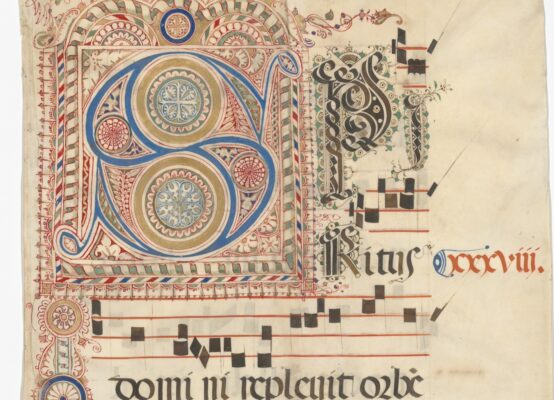 SPI
Ritus xxxviii.
domi ni repleuit orbē